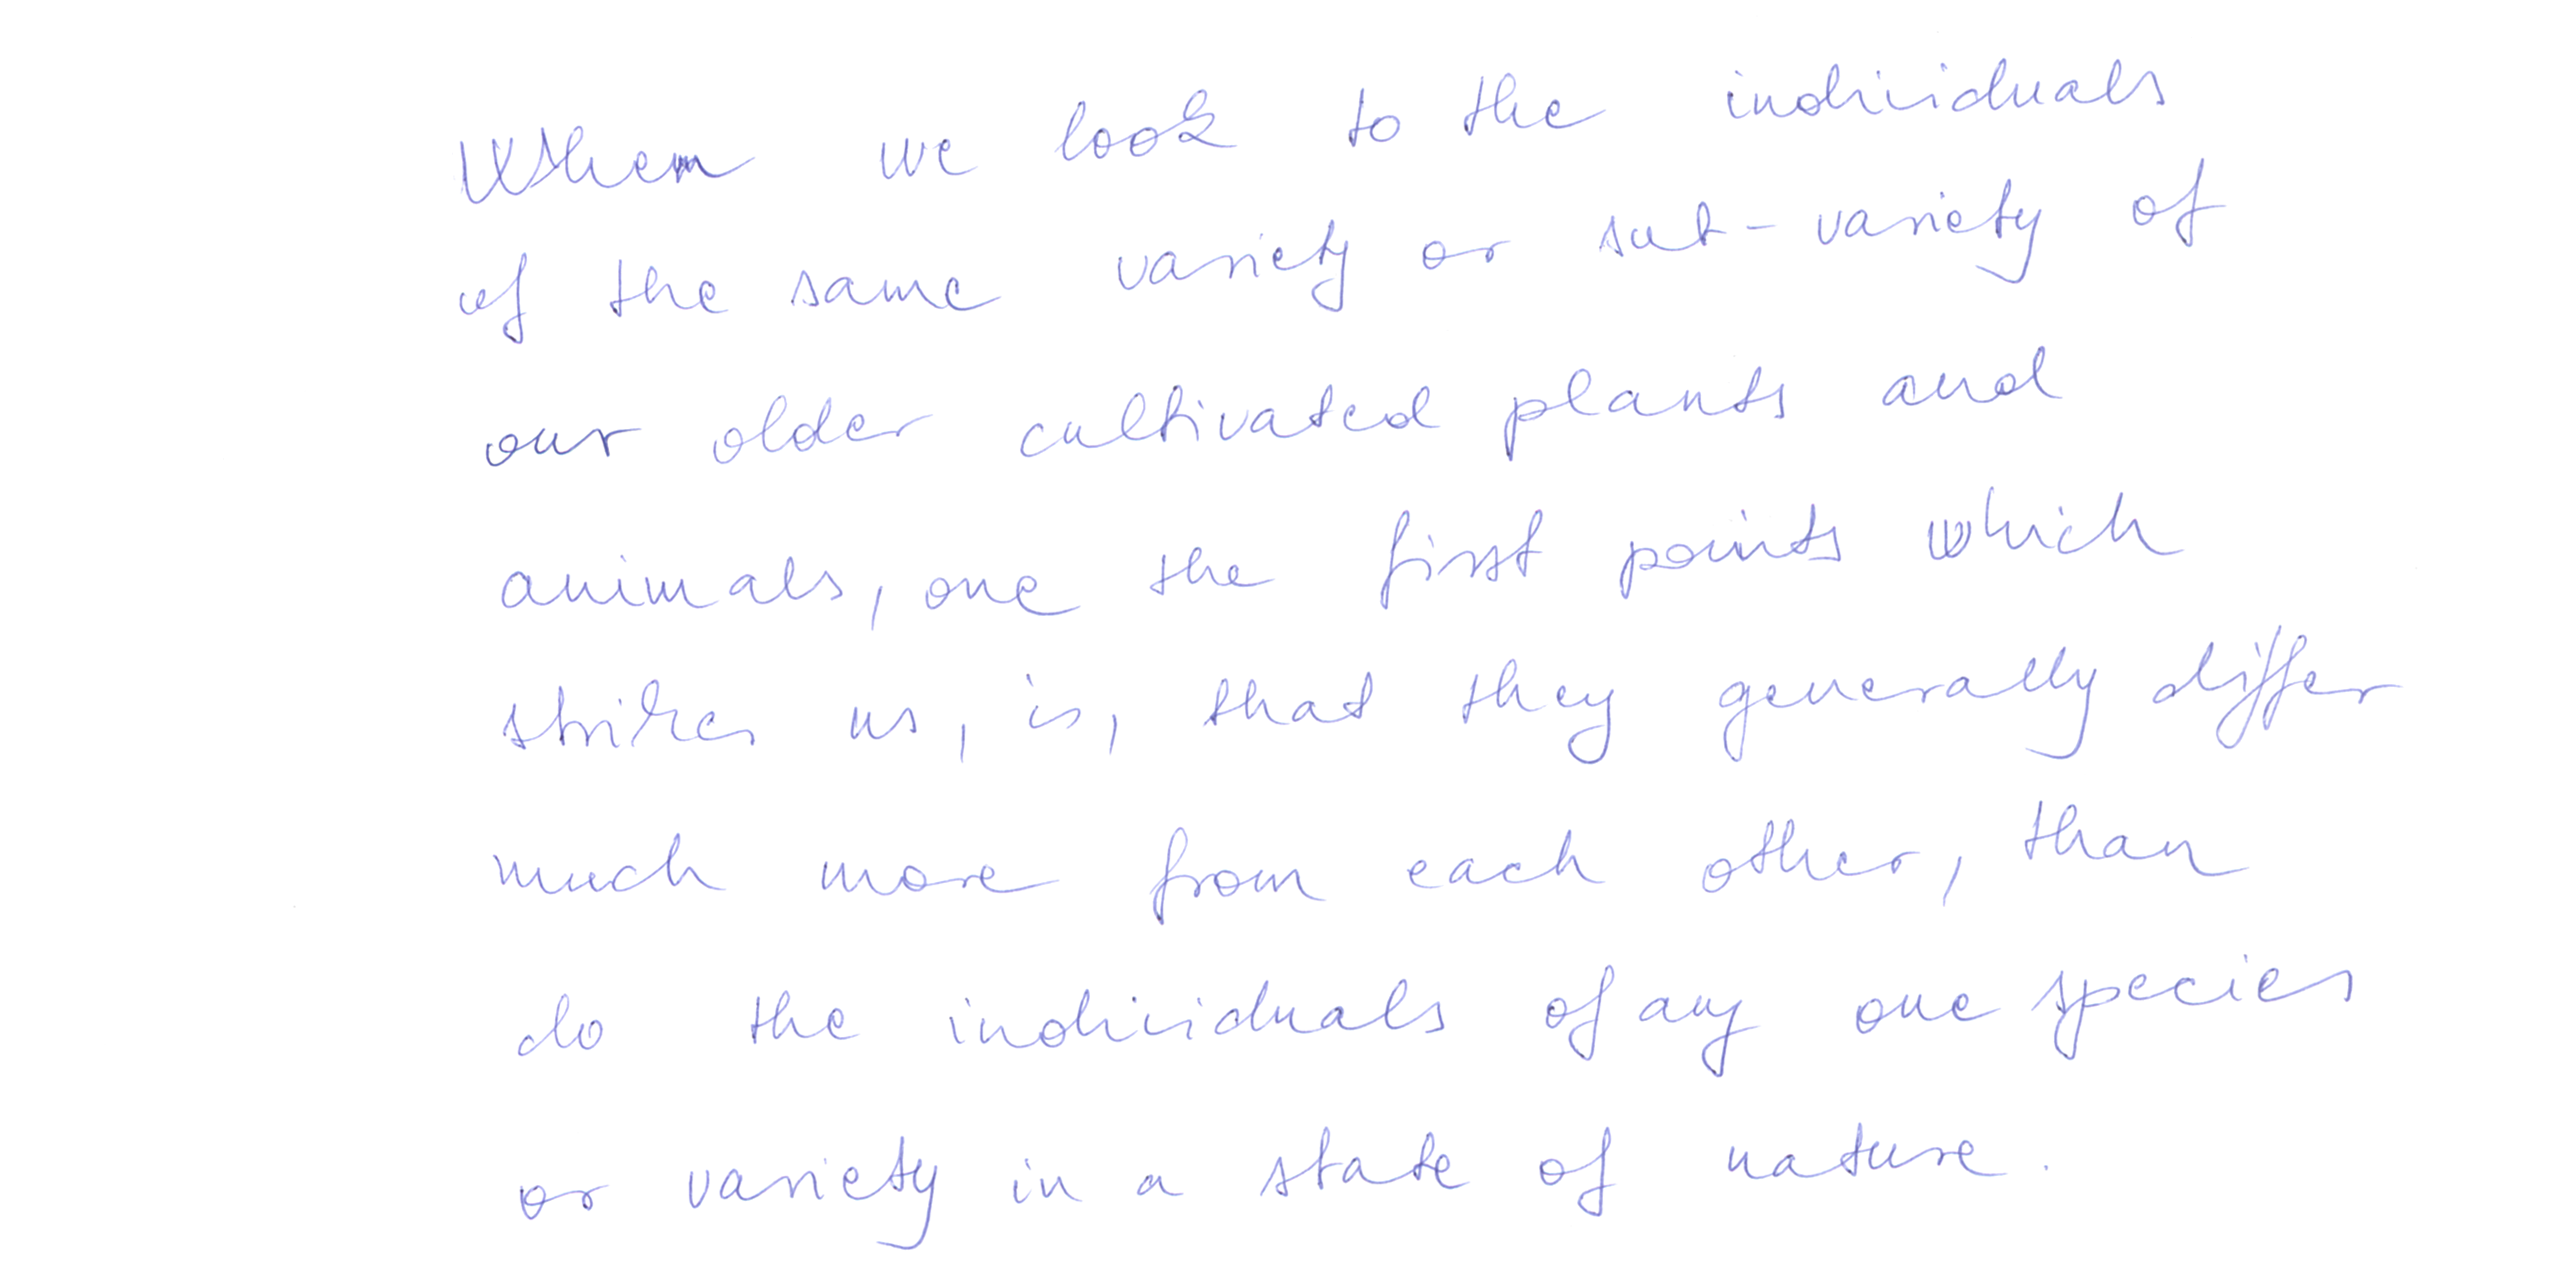 When we look to the individuals
of the same variety or sub-variety of
our older cultivated plants and
animals, one the first points which
strikes us, is, that they generally differ
much more from each other, than
do the individuals of any one species
or variety in a state of nature.